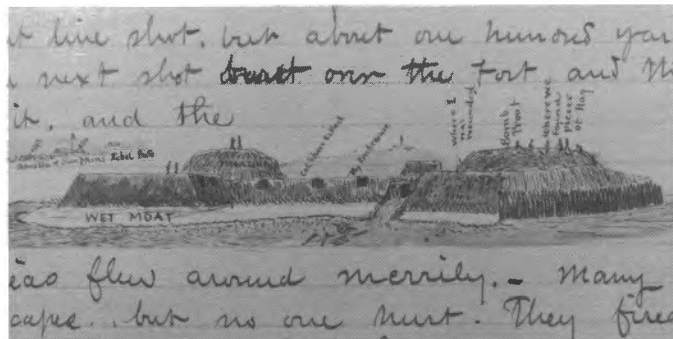 t line shot, but about one hundred yar
next shot burst over the Fort, and th
it, and the
Rebel Forts
Where I was wounded
Bomb Proof
Where we found pieces of Flag
My Entrance
WET MOAT
flew around merrily. - Many
cape.. but no one hurt. They fired